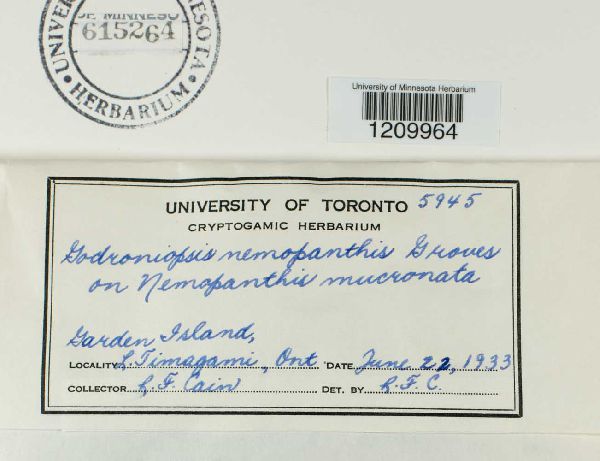 UNIVERSITY OF MINNESOTA
615264
HERBARIUM
University of Minnesota Herbarium
1209964
UNIVERSITY OF TORONTO 5945
CRYPTOGAMIC HERBARIUM
Godroniopsis nemopanthis Groves
on Nemopanthis mucronata
Garden Island,
LOCALITY L. Timagami, Ont DATE June 22, 1933
COLLECTOR R. F. Cain DET. BY R. F. C.